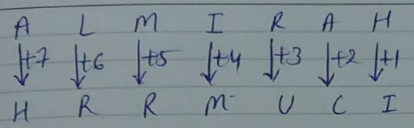 A L M I R A H
↓+7 ↓+6 ↓+5 ↓+4 ↓+3 ↓+2 ↓+1
H R R M U C I